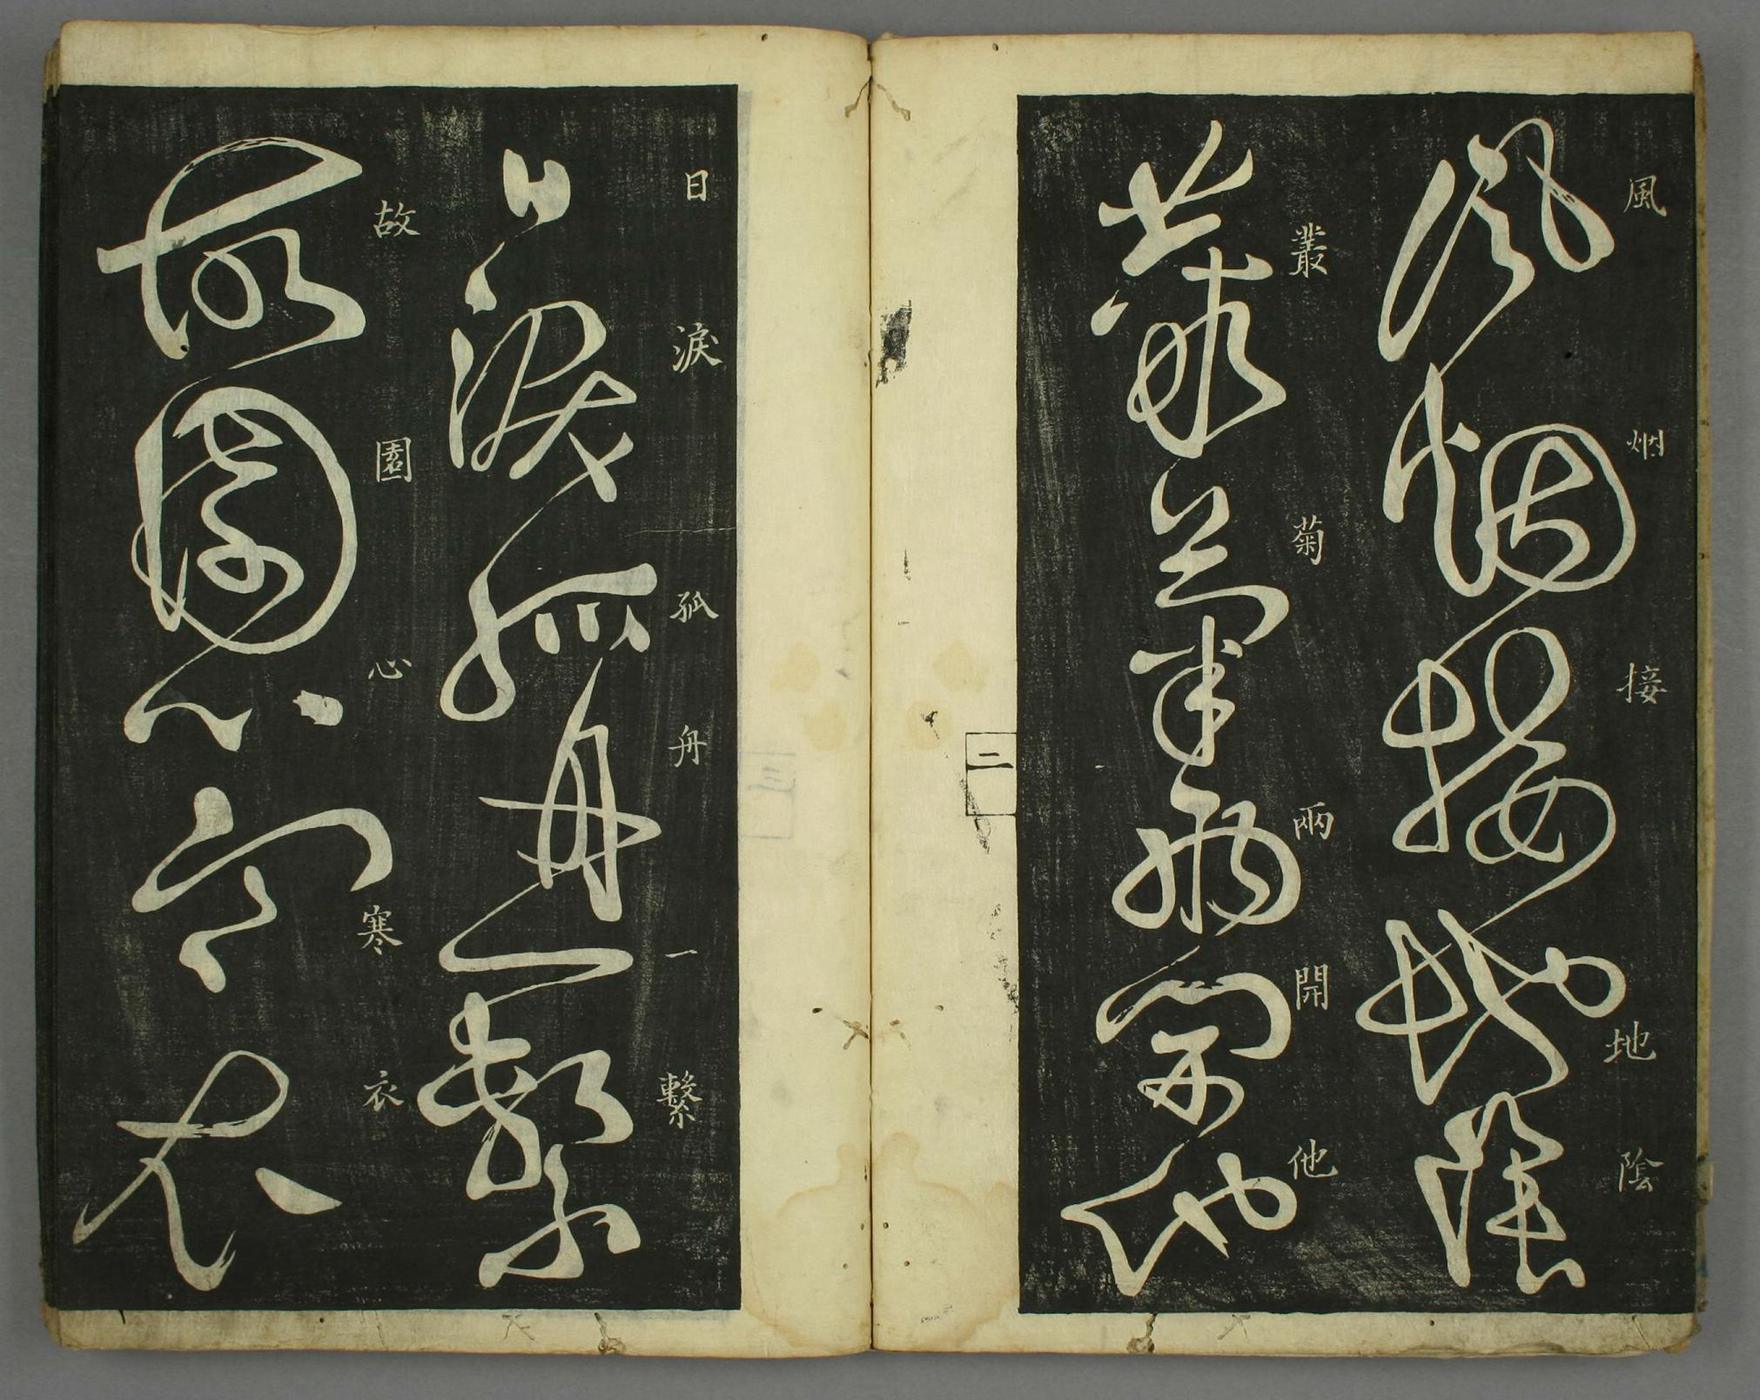 風烟接地陰
叢菊兩開他
日淚孤舟一繫
故園心寒衣
二
三